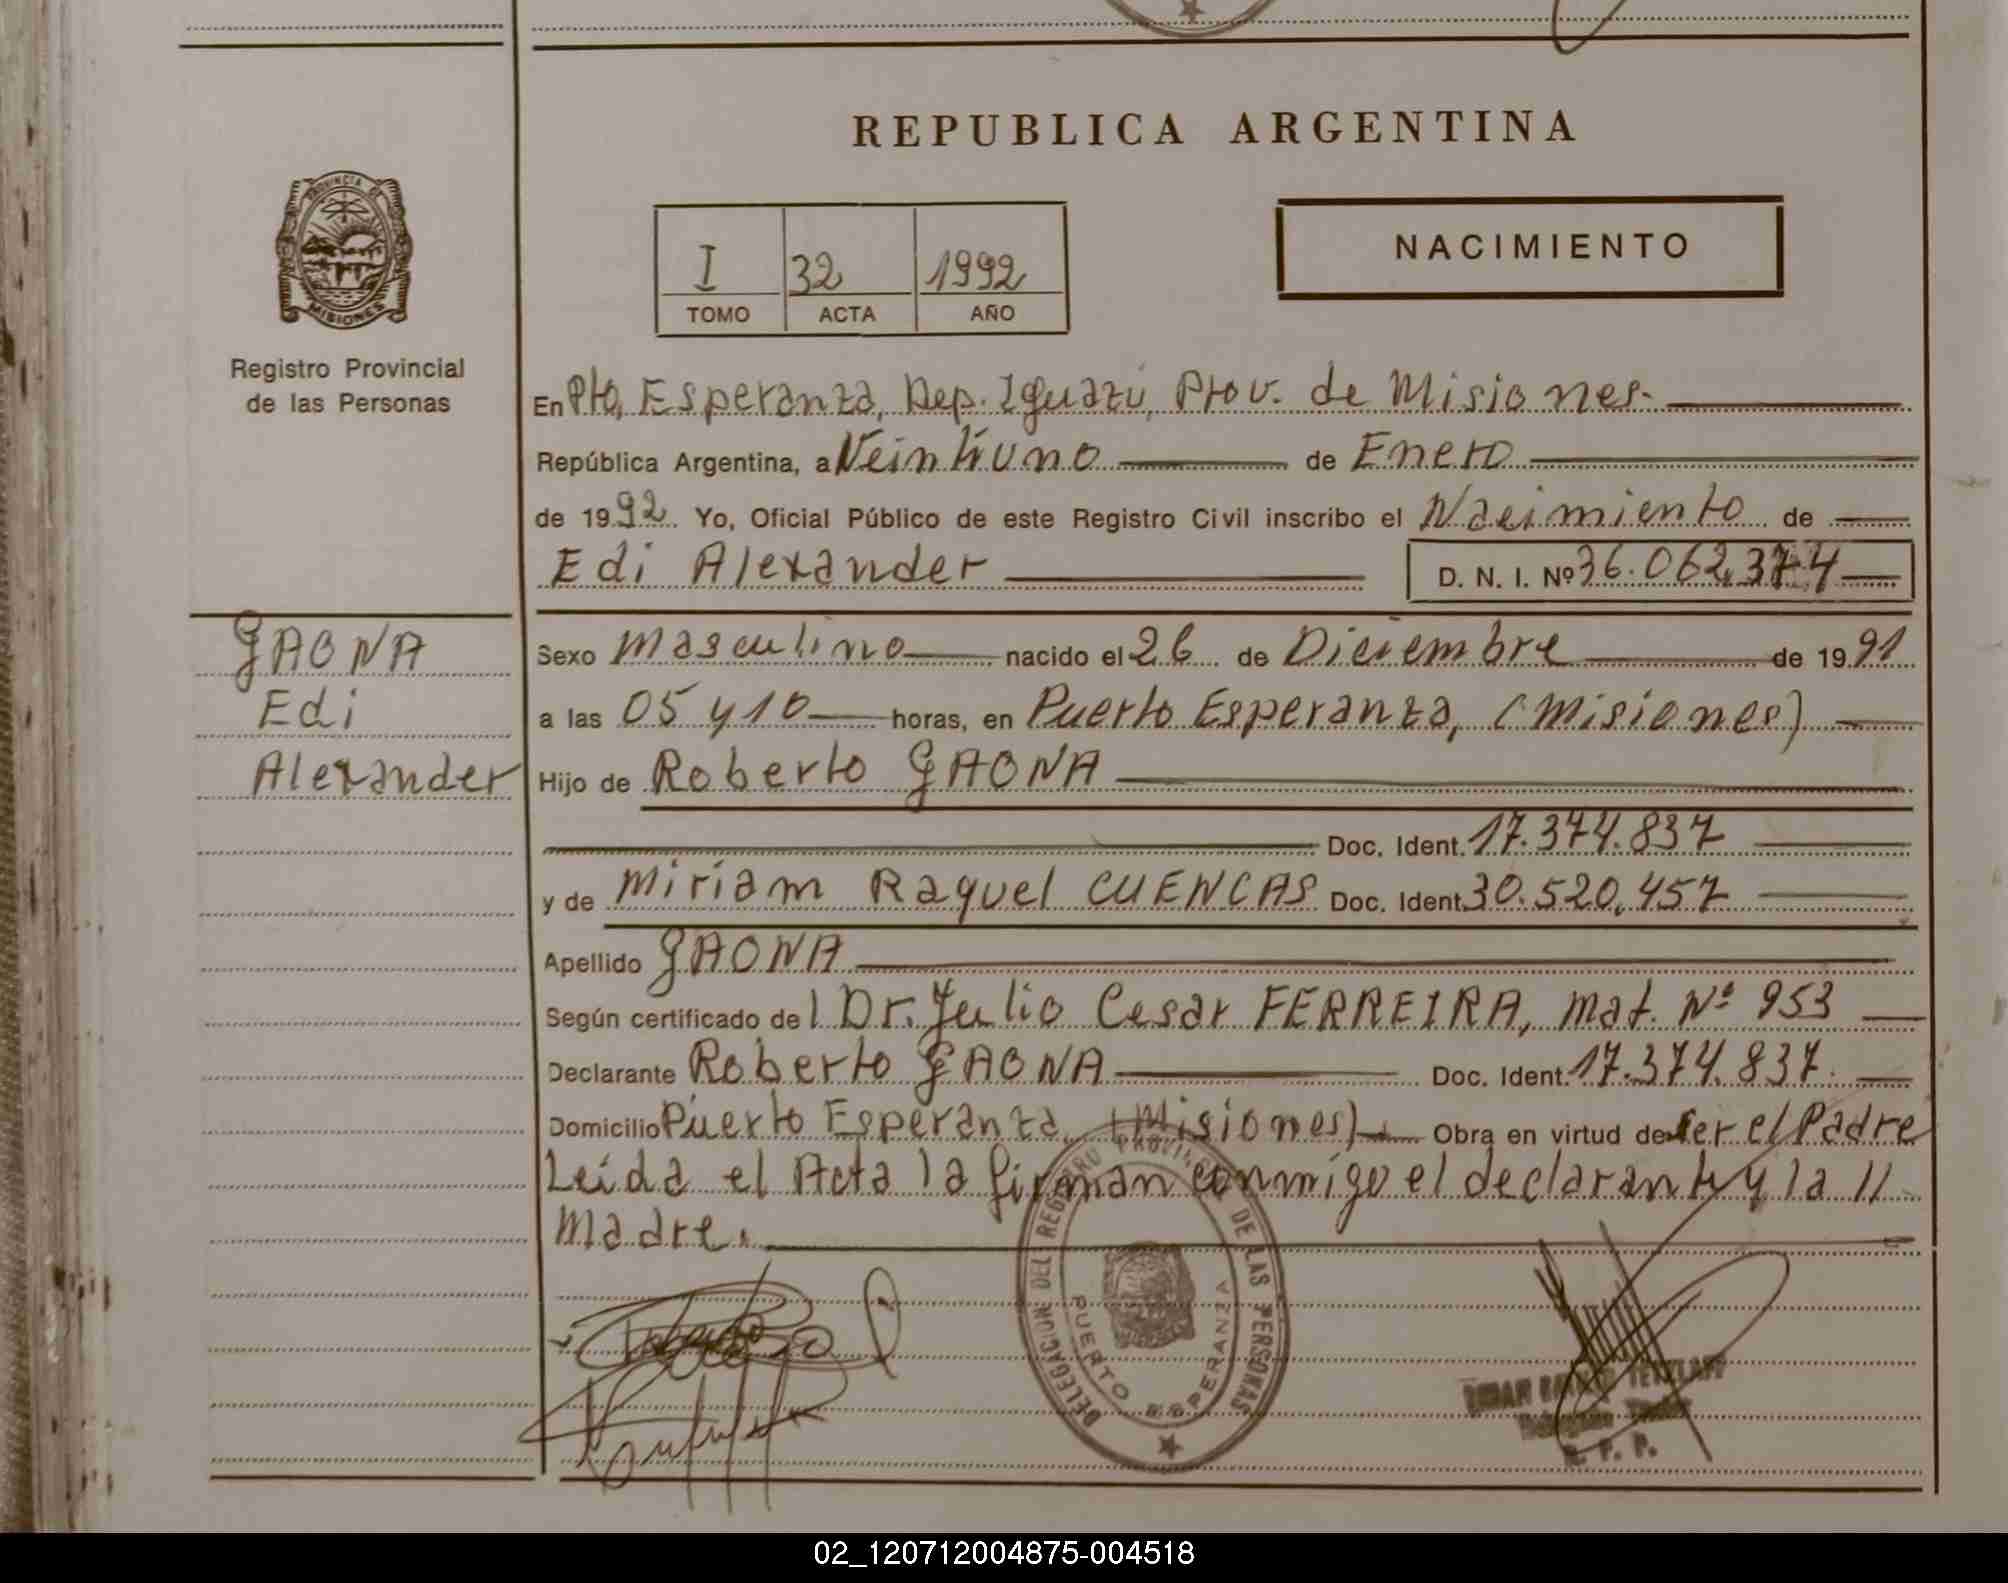 REPUBLICA ARGENTINA
PROVINCIA DE
MISIONES
Registro Provincial
de las Personas
I 32 1992
TOMO ACTA AÑO
NACIMIENTO
En Pto. Esperanza, Dep. Iguazú, Prov. de Misiones.-
República Argentina, a Veintiuno de Enero
de 1992. Yo, Oficial Público de este Registro Civil inscribo el Nacimiento de
Edi Alexander D. N. I. Nº 36.062.374
GAONA
Edi
Alexander
Sexo Masculino nacido el 26 de Diciembre de 1991
a las 05 y 10 horas, en Puerto Esperanza, (Misiones)
Hijo de Roberto GAONA
Doc. Ident. 17.374.837
y de Miriam Raquel CUENCAS Doc. Ident. 30.520.457
Apellido GAONA
Según certificado del Dr. Julio Cesar FERREIRA, Mat. Nº 953
Declarante Roberto GAONA Doc. Ident. 17.374.837.
Domicilio Puerto Esperanza, (Misiones) Obra en virtud de ser el Padre
Leída el Acta la firman conmigo el declarante y la //
Madre.
DELEGACION DEL REGISTRO PROVINCIAL DE LAS PERSONAS
PUERTO ESPERANZA
R. P. P.
02_120712004875-004518